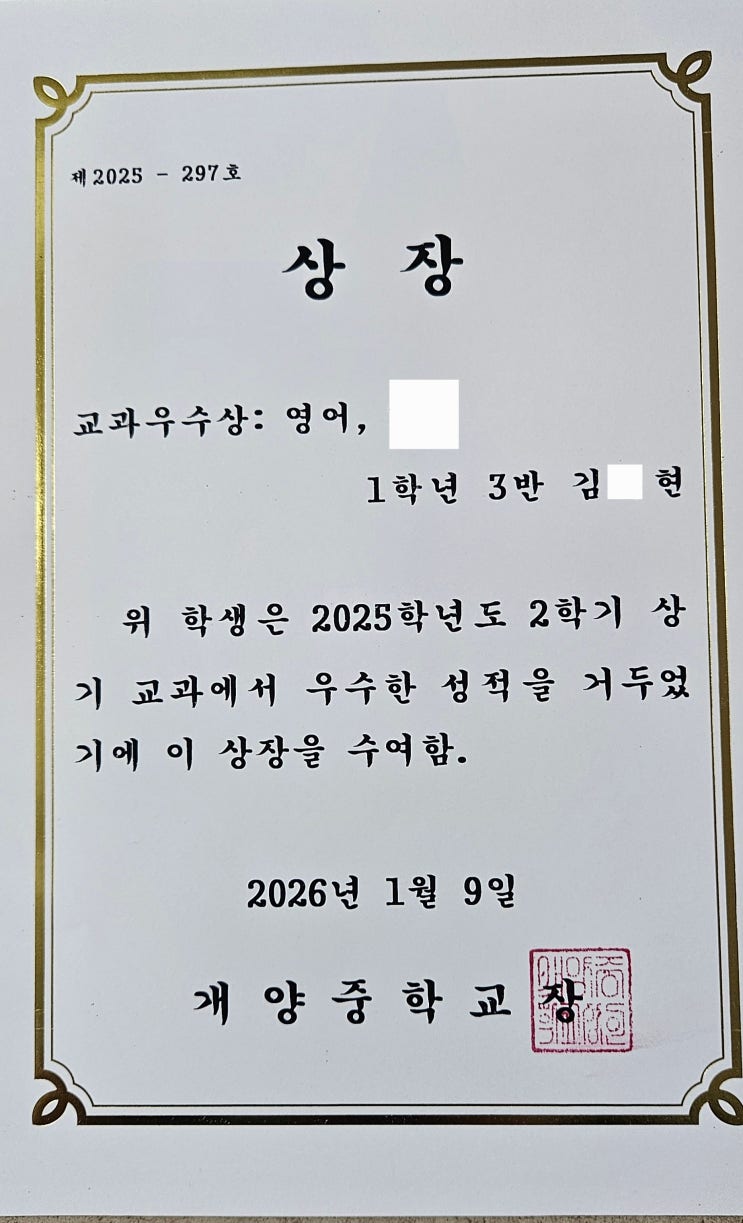 제2025 - 297호
상 장
교과우수상: 영어,
1학년 3반 김 현
위 학생은 2025학년도 2학기 상
기 교과에서 우수한 성적을 거두었
기에 이 상장을 수여함.
2026년 1월 9일
개양중학교장